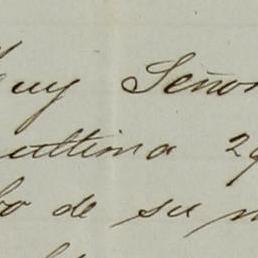 uy Señor
ultima 29
bo de su m